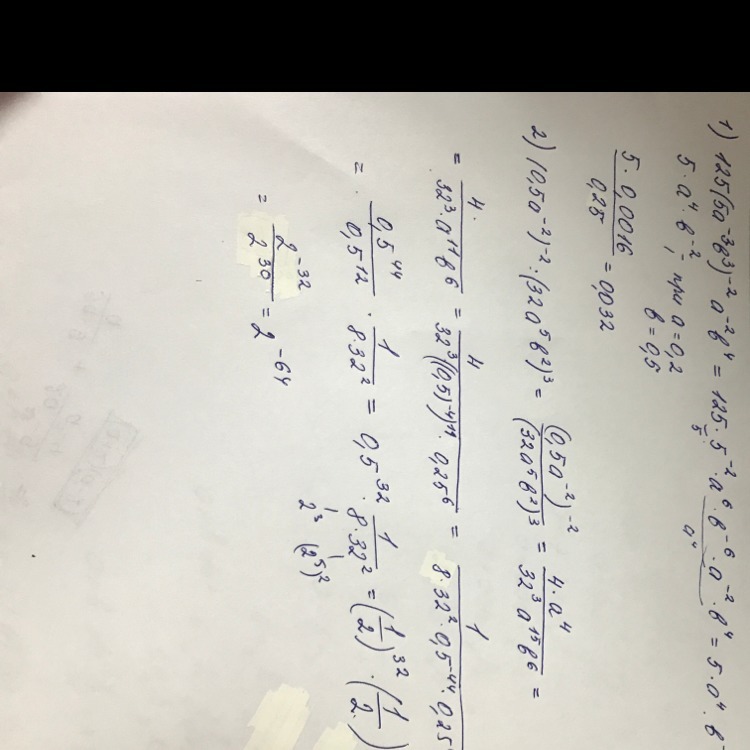 1) 125(5a⁻³b³)⁻² a⁻² b⁴ = 125 · 5⁻² · a⁶ · b⁻⁶ · a⁻² · b⁴ = 5 · a⁴ · b
5
a⁴
5 · a⁴ · b⁻², при a = 0,2
b = 0,5
5 · 0,0016 / 0,25 = 0,0032
2) (0,5a⁻²)⁻² : (32a⁵b²)³ = (0,5a⁻²)⁻² / (32a⁵b²)³ = 4 · a⁴ / 32³ a¹⁵ b⁶ =
= 4 · / 32³ · a¹¹ b⁶ = 4 / 32³ ((0,5)⁻⁴)¹¹ · 0,25⁶ = 1 / 8 · 32² · 0,5⁻⁴⁴ · 0,25
= 0,5⁴⁴ / 0,5¹² · 1 / 8 · 32² = 0,5³² · 1 / 8 · 32² = (1/2)³² · (1/2)
2³ (2⁵)²
= 2⁻³² / 2³⁰ = 2⁻⁶⁴